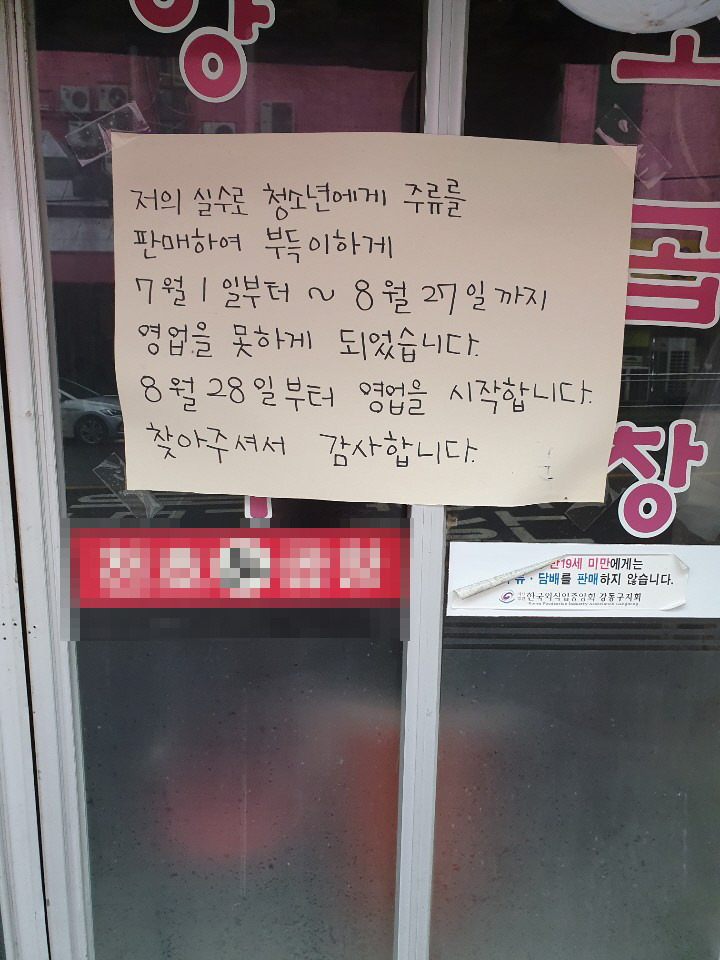 저의 실수로 청소년에게 주류를
판매하여 부득이하게
7월 1일부터 ~ 8월 27일까지
영업을 못하게 되었습니다.
8월 28일부터 영업을 시작합니다.
찾아주셔서 감사합니다.
장
만19세 미만에게는
주류·담배를 판매하지 않습니다.
한국외식업중앙회 강동구지회